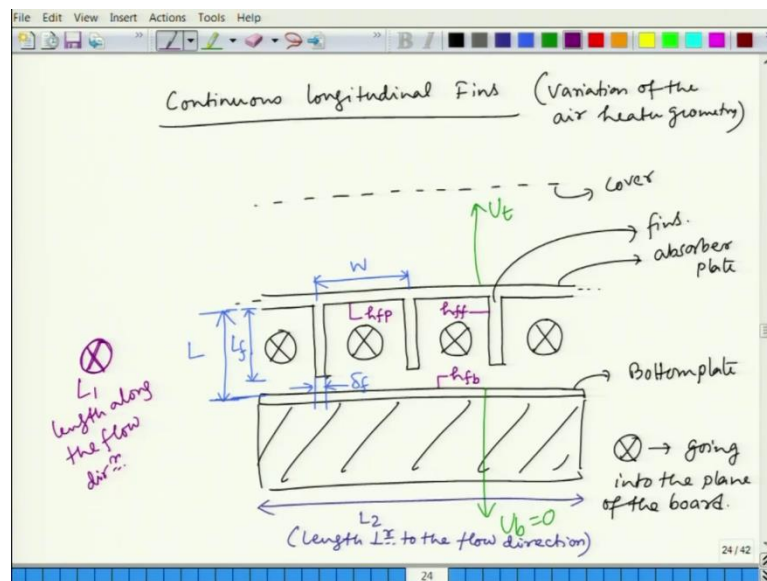 File Edit View Insert Actions Tools Help
B I
Continuous Longitudinal Fins (Variation of the
air heater geometry)
cover
Ut
fins.
absorber
plate
W
hfp
hff
L
Lf
δf
hfb
Bottom plate
L1
length along
the flow
dirⁿ.
⊗ → going
into the plane
of the board.
L2
(Length ⊥ʳ to the flow direction)
Ub=0
24/42
24